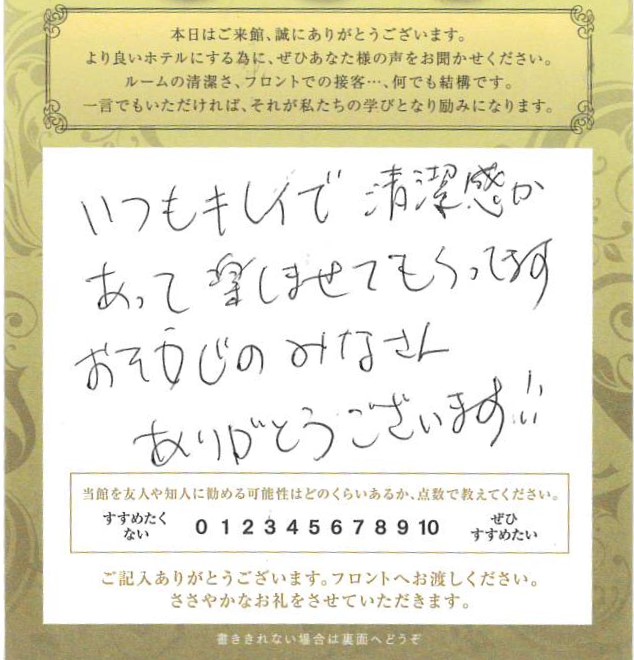 本日はご来館、誠にありがとうございます。
より良いホテルにする為に、ぜひあなた様の声をお聞かせください。
ルームの清潔さ、フロントでの接客…、何でも結構です。
一言でもいただければ、それが私たちの学びとなり励みになります。
いつもキレイで 清潔感か
あって 楽しませてもらってます
おそうじの みなさん
ありがとうございます!!
当館を友人や知人に勧める可能性はどのくらいあるか、点数で教えてください。
すすめたくない 0 1 2 3 4 5 6 7 8 9 10 ぜひすすめたい
ご記入ありがとうございます。フロントへお渡しください。
ささやかなお礼をさせていただきます。
書ききれない場合は裏面へどうぞ